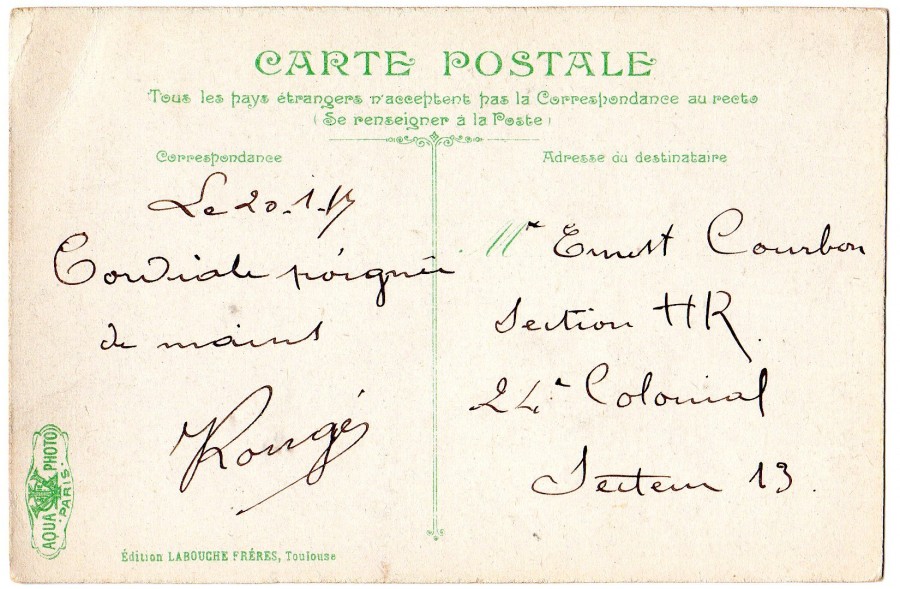 CARTE POSTALE
Tous les pays étrangers n'acceptent pas la Correspondance au recto
(Se renseigner à la Poste)
Correspondance
Le 20-1-17
Cordiale poignée
de mains
Rougés
Adresse du destinataire
Mr Ernest Courbon
Section HR
24e Colonial
Secteur 13.
AQUA PHOTO
PARIS
Édition LABOUCHE FRÈRES, Toulouse